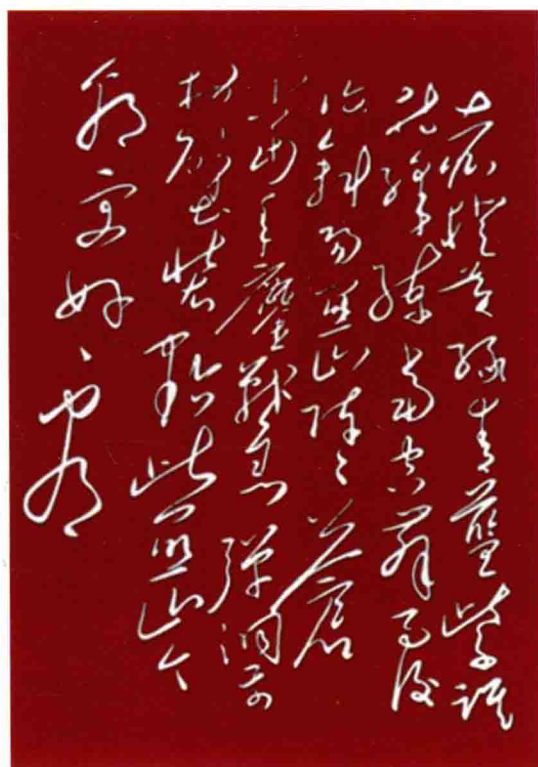 赤橙黃綠青藍紫誰
持彩練當空舞雨後
復斜陽關山陣々蒼
當年鏖戰急彈洞前
村壁裝點此關山今
朝更好看